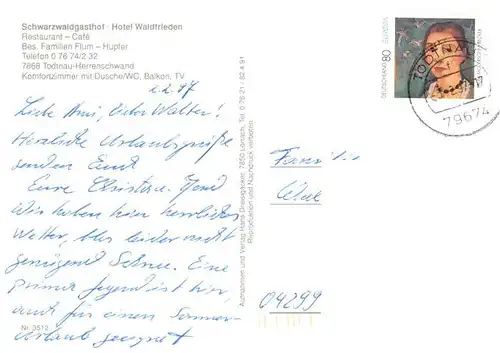 Schwarzwaldgasthof · Hotel Waldfrieden
Restaurant – Café
Bes. Familien Flum – Hupfer
Telefon 0 76 74/2 32
7868 Todtnau-Herrenschwand
Komfortzimmer mit Dusche/WC, Balkon, TV
1.2.97
Liebe Ami, lieber Walter!
Herzliche Urlaubsgrüße
senden Euch
Eure Christa u.
Wir haben hier herrliches
Wetter, bloß leider nicht
genügend Schnee. Eine
prima Gegend ist hier,
auch für einen Sommer-
Urlaub geeignet
Nr. 3512
Aufnahmen und Verlag Hans Dreisigacker, 7850 Lörrach, Tel. 0 76 21 - 82 4 91
Reproduktion und Nachdruck verboten
DEUTSCHLAND 80
TODTNAU
79674
Familie
04299